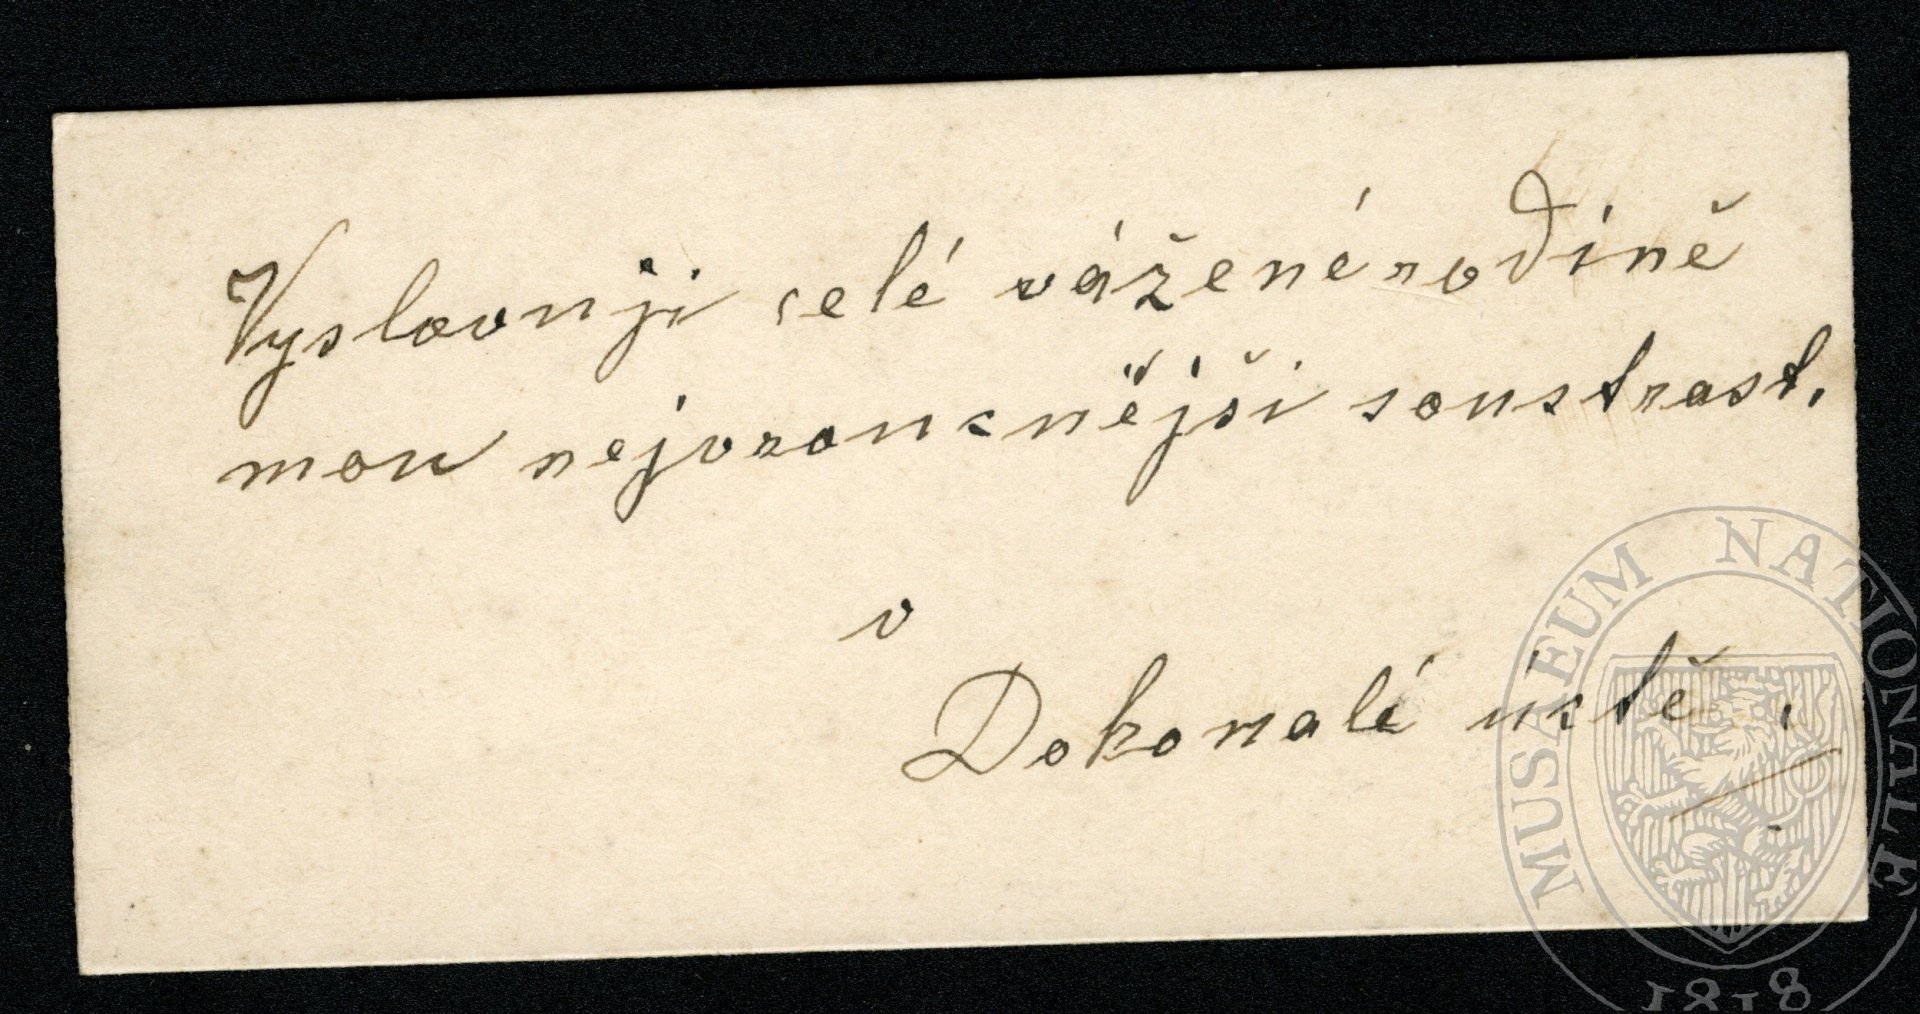 Vyslovuji celé vážené rodině
mou nejvroucnější soustrast.
v
Dokonalé úctě.
MUSAEUM NATIONALE
1818